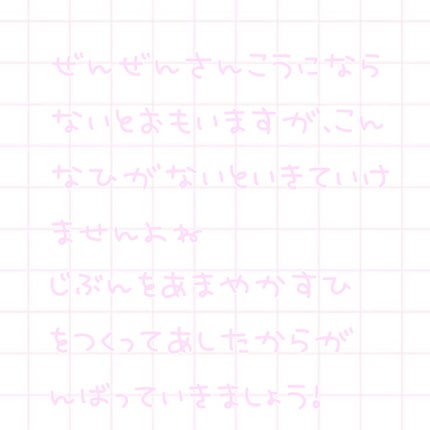 ぜんぜんさんこうになら
ないとおもいますが、こん
なひがないといきていけ
ませんよね
じぶんをあまやかすひ
をつくってあしたからが
んばっていきましょう!